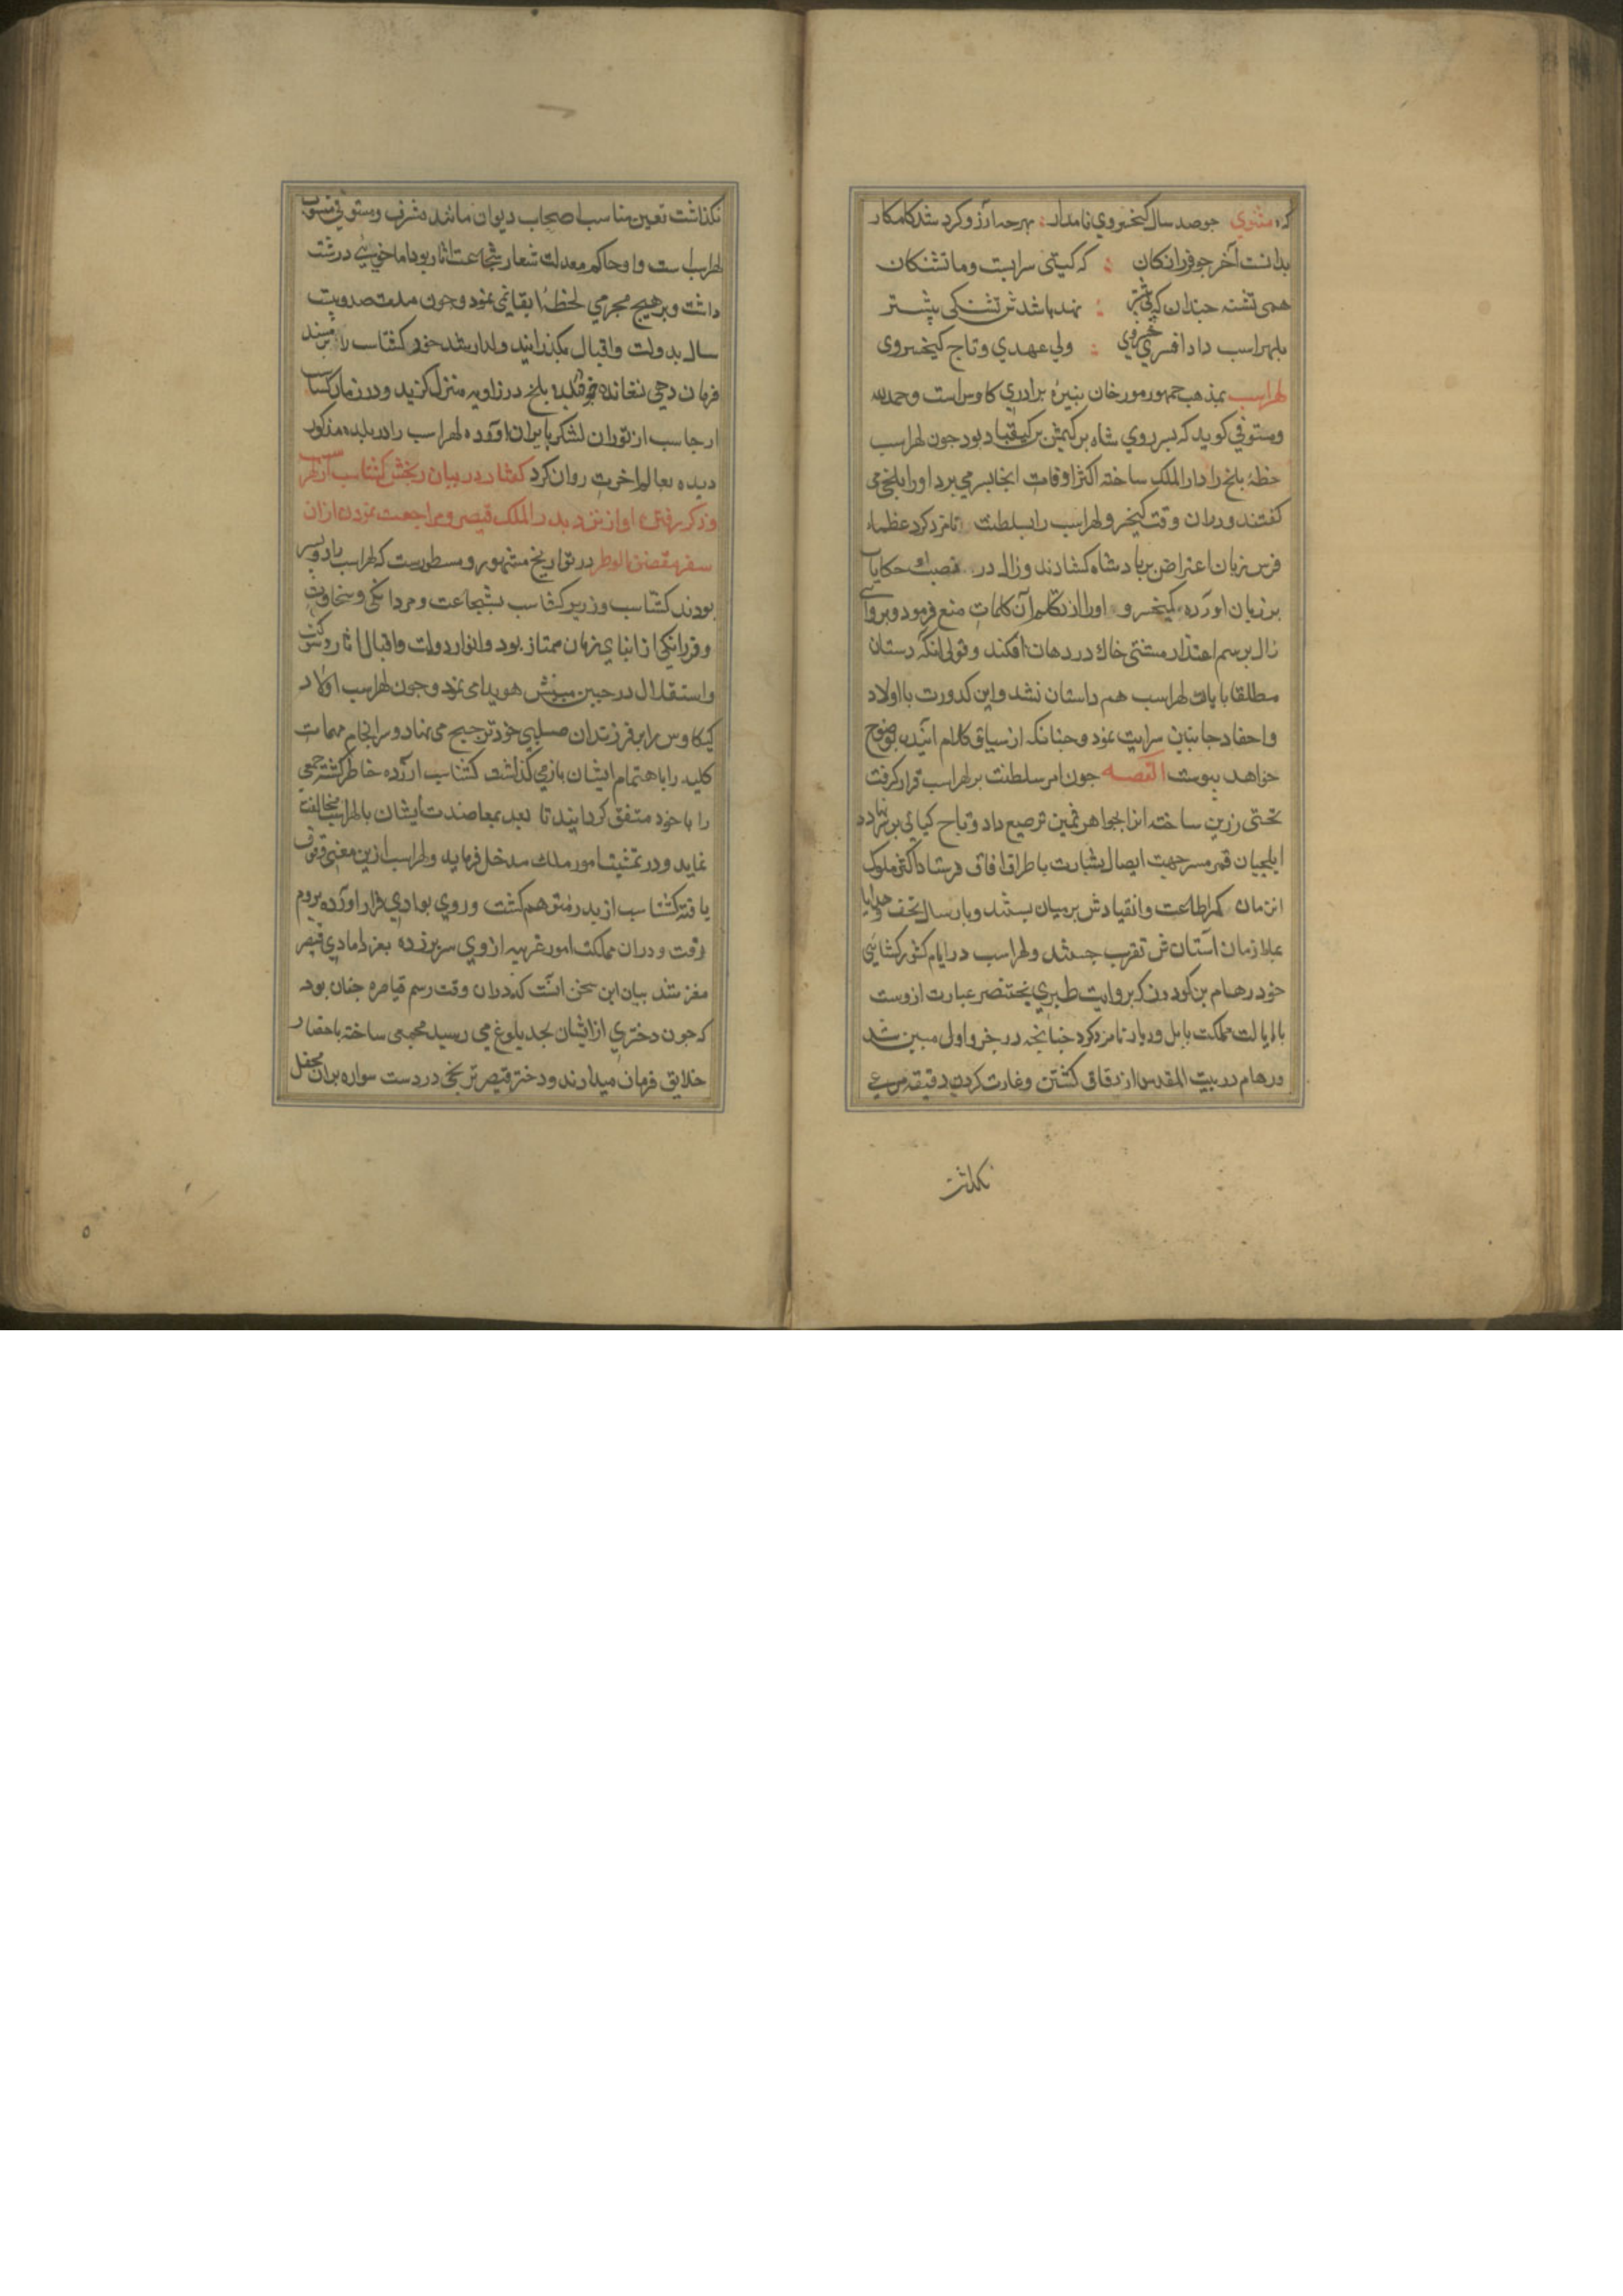 کرد مثنوي جو صد سال کیخسروي نامدار بهرجه آرزو کرد شد کامکار
بدانست آخر جو فرزانکان که کیتی سرابست و ما تشنکان
همی تشنه جندان که پیشتر نهد باشدش تشنکی بیشتر
بلهراسب داد افسري خسروي ولي عهدي و تاج کیخسروی
لهراسب بمذهب جمهور مورخان نبیرۀ برادري کاوس است و حمدالله
مستوفي کوید که بسر روي شاه بن کیمنش بن کیقباد بود جون لهراسب
خطۀ بلخ را دار الملک ساخته اکثر اوقات انجا بسر مي برد او را بلخي می
کفتند و دران وقت کیخسرو لهراسب را بسلطنت نامزد کرد عظماء
فرس زبان اعتراض بر بادشاه کشادند و زال در حکایات
بر زبان اورده کیخسرو او را از تکلم آن کلمات منع فرمود و بروایتی
زال برسم اعتذار مشتی خاك در دهان افکند و قولي انکه دستان
مطلقا با یات لهراسب هم داستان نشد و این کدورت با اولاد
و احفاد جانبین سرایت نمود و جنانکه از سیاق کلام اینده بوضوح
خواهد بیوست القصه جون امر سلطنت بر لهراسب قرار کرفت
تختی زرین ساخته انرا بجواهر ثمین ترصیع داد و تاج کیانی بر سر نهاد
ایلجیان قمر مسیر جهت ایصال بشارت باطراف افاق فرستاد اکثر ملوک
ان زمان کمر اطاعت و انقیادش بر میان بستند و بارسال تحف و هدایا
بملازمان آستانش تقرب جستند و لهراسب در ایام کشورکشایی
خود رهام بن کودرز که بروایت طبري بختنصر عبارت ازوست
بایالت مملکت بابل و دیار نامزد کرد جنانجه در جزو اول مبین شد
و رهام در بیت المقدس از دقایق کشتن و غارت کردن دقیقه مرعي
نکذاشت
نکذاشت تعین مناسب اصحاب دیوان مانند مشرف و مستوفي منسوب
لهراسب است و او حاکم معدلت شعار شجاعت اثار بود اما خوئي درشت
داشت و بر هیج مجرمي لحظۀ ابقا نمی نمود و جون مدت صد و بیست
سال بدولت و اقبال بکذرانید ولد ارشد خود کشتاسب را بر مسند
فرمان دهي نشانده خود بلخ در زاویه منزل کزید و در زمان کشتاسب
ارجاسب از توران لشکر بایران اورده لهراسب را در بلده مذکور
دیده بعالم اخرت روان کرد کفتار در بیان رنجش کشتاسب از لهراسب
و ذکر رفتن او از نزد بدر الملک قیصر و مراجعت نمودن ازان
سفر مقضی الوطر در تواریخ مشهور و مسطورست که لهراسب را دو بسر
بودند کشتاسب و زریر کشتاسب بشجاعت و مردانکی و سخاوت
و فرزانکی از ابنای زمان ممتاز بود و انوار دولت و اقبال اثار
و استقلال در جبین مبینش هویدا می نمود و جون لهراسب اولاد
کیکاوس را بر فرزندان صلبي خود ترجیح می نهاد و سرانجام مهمات
کلیه را باهتمام ایشان باز می کذاشت کشتاسب ازرده خاطر کشته جمعي
را با خود متفق کردانید تا بعد بمعاضدت ایشان با لهراسب مخالفت
نماید و در تمشیت امور ملک مدخل فرماید و لهراسب ازین معني وقوف
یافته کشتاسب از بدر متوهم کشت و روي بوادي فرار اورده بروم
رفت و دران مملکت امور غریبه از وي سر برزده بعز دامادي قیصر
معزز شد بیان این سخن انست که دران وقت رسم قیاصره جنان بود
که جون دختري از ایشان بحد بلوغ مي رسید مجمعی ساخته باحضار
خلایق فرمان میدادند و دختر قیصر ترنجي در دست سواره بران محفل
٥